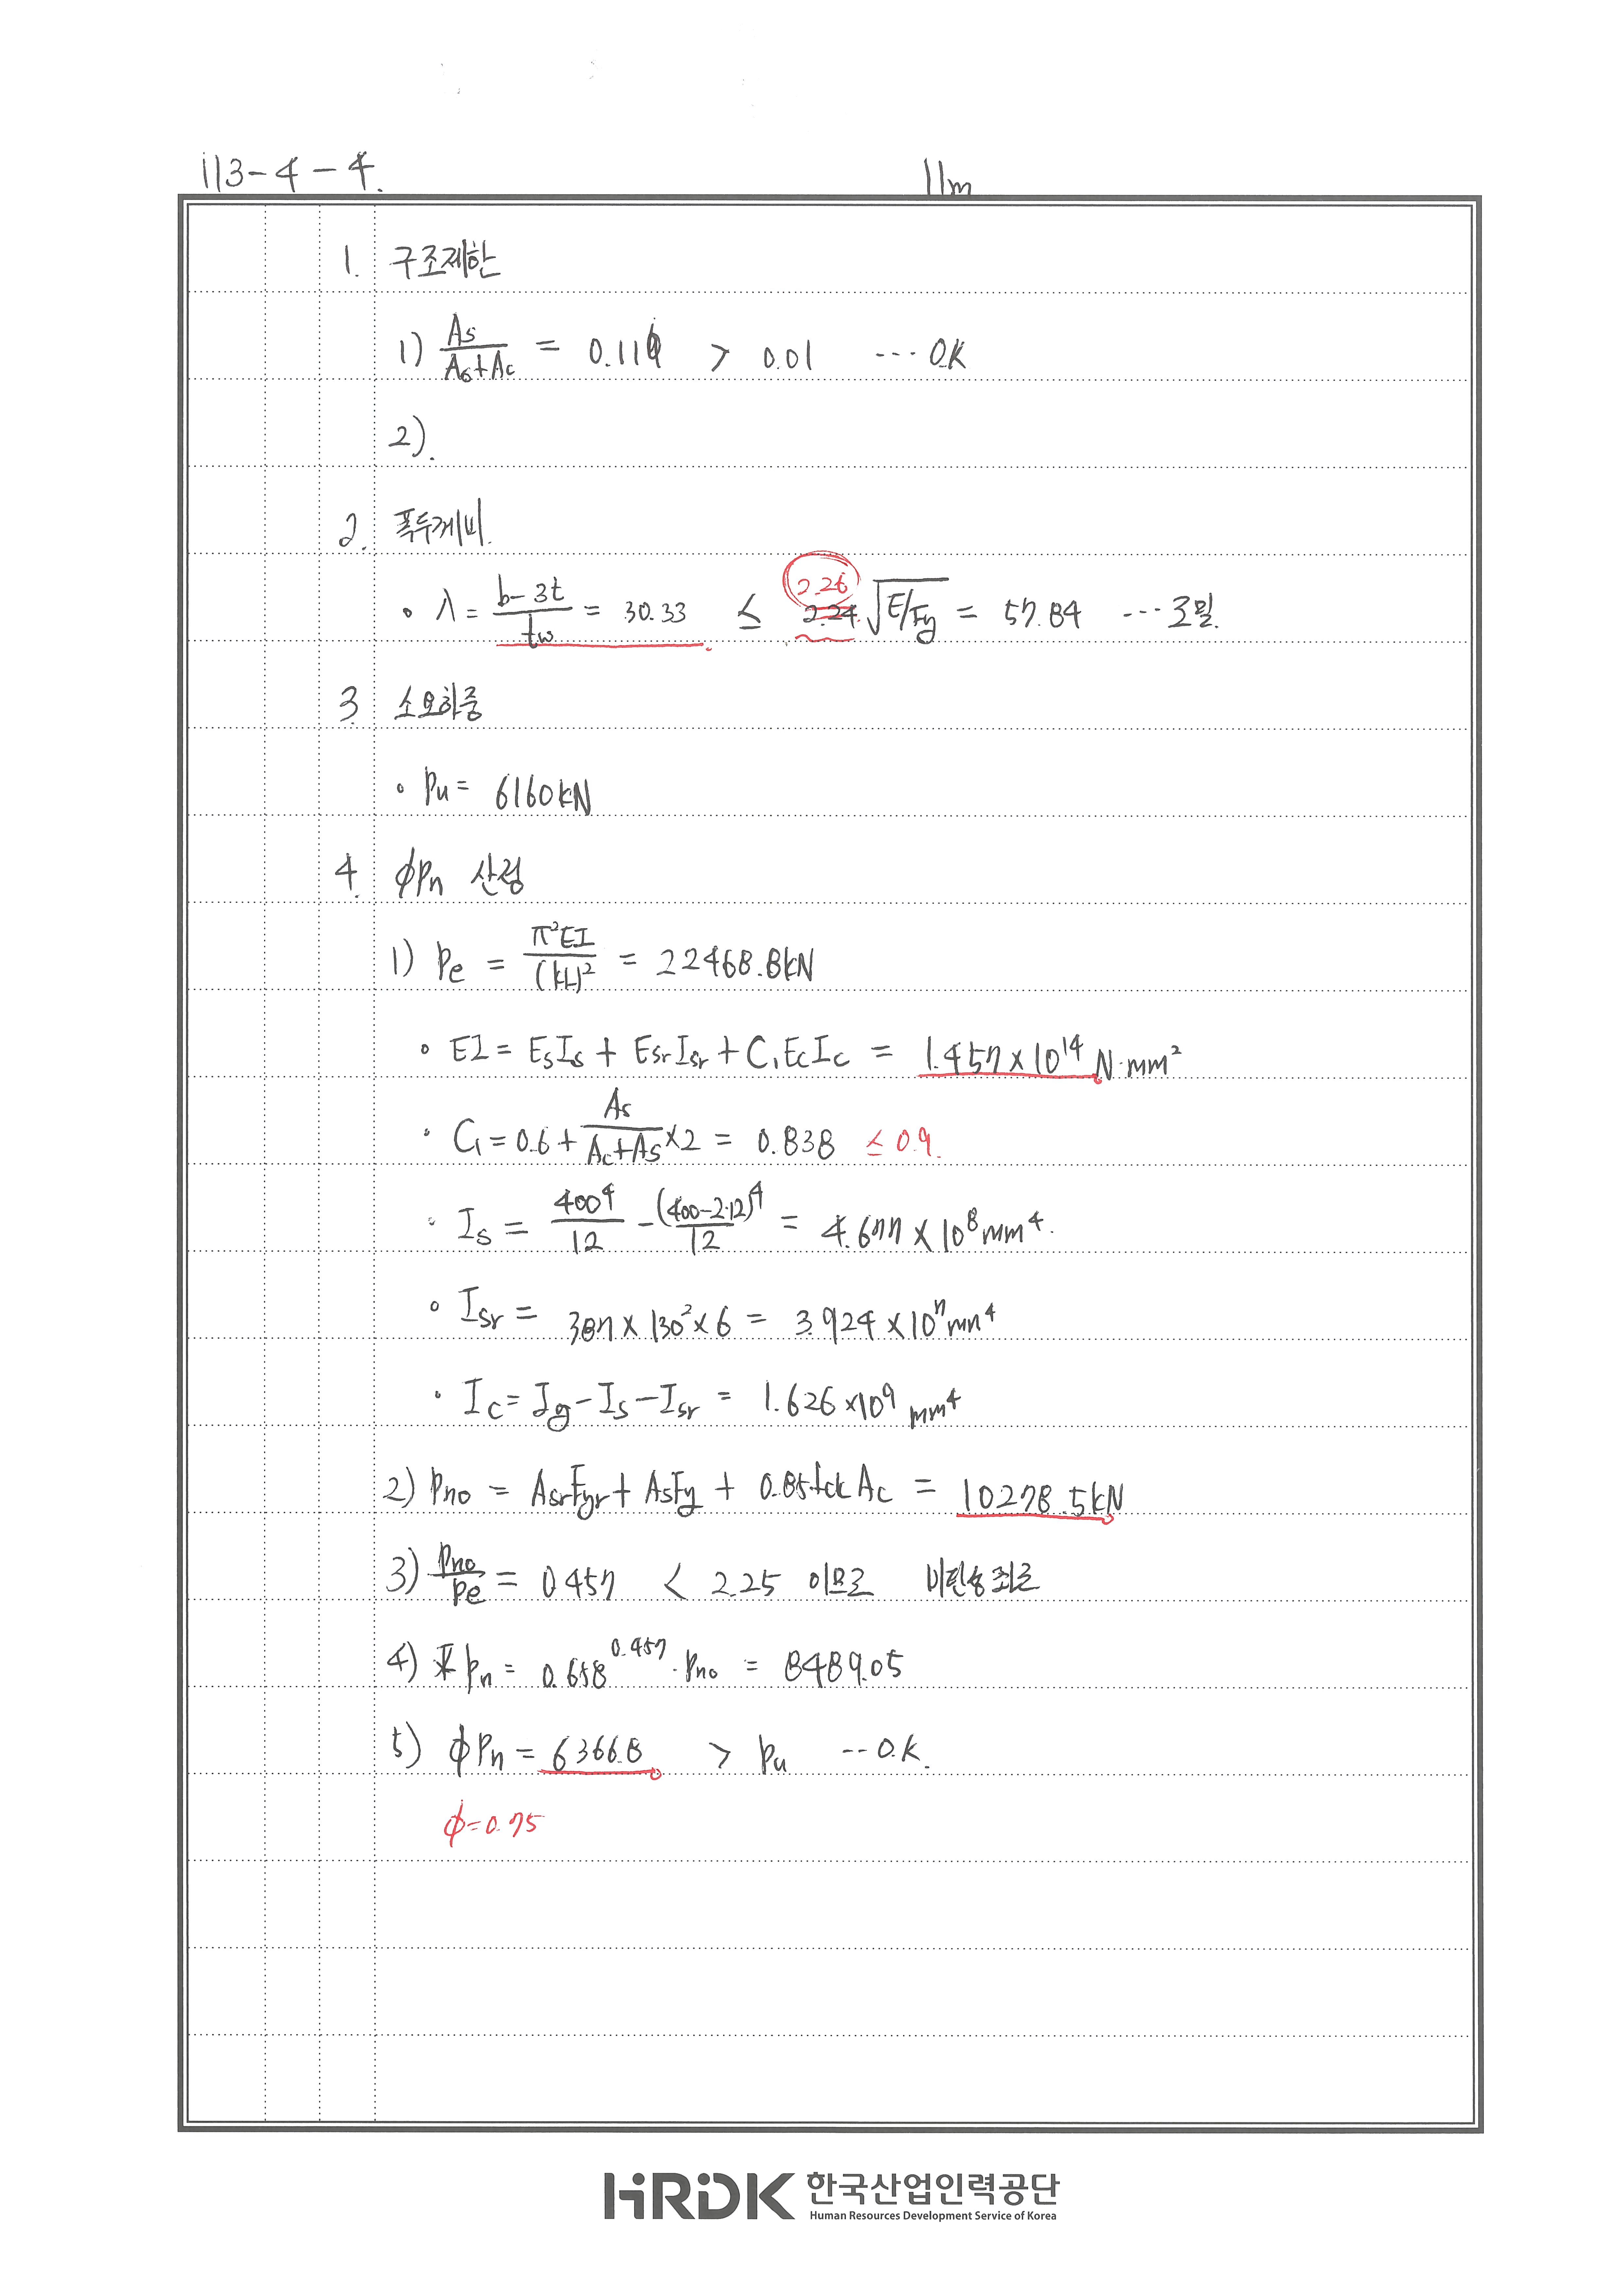 113-4-4.
11m
1. 구조제한
1) As/(As+Ac) = 0.119 > 0.01 ··· O.K
2).
2. 폭두께비.
∘ λ = (b-3t)/tw = 30.33 ≤ 2.24 2.26 √(E/Fy) = 57.84 ··· 조밀.
3. 소요하중
∘ Pu = 6160kN
4. ϕPn 산정
1) Pe = π²EI/(kL)² = 22468.8kN
∘ EI = EsIs + EsrIsr + C₁EcIc = 1.457×10¹⁴ N·mm²
· C₁ = 0.6 + As/(Ac+As) ×2 = 0.838 ≤ 0.9.
· Is = 400⁴/12 - (400-2·12)⁴/12 = 4.677 × 10⁸mm⁴.
∘ Isr = 387 × 130² × 6 = 3.924 × 10⁷mm⁴
· Ic = Ig - Is - Isr = 1.626×10⁹ mm⁴
2) Pno = AsrFyr + AsFy + 0.85fck Ac = 10278.5kN
3) Pno/Pe = 0.457 < 2.25 이므로 비탄성좌굴
4) Pn = 0.658^0.457 · Pno = 8489.05
5) ϕPn = 6366.8 > Pu -- O.K.
ϕ=0.75
HRDK 한국산업인력공단
Human Resources Development Service of Korea